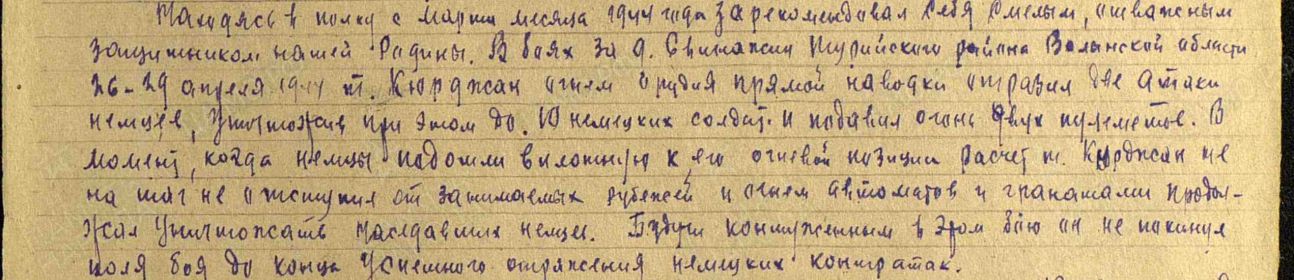 Находясь в полку с марта месяца 1944 года зарекомендовал себя смелым, отважным
защитником нашей Родины. В боях за д. Свинажин Турийского района Волынской области
26-29 апреля 1944 т. Кюрджан огнем орудия прямой наводки отразил две атаки
немцев, уничтожив при этом до 10 немецких солдат и подавил огонь двух пулеметов. В
момент, когда немцы подошли вплотную к его огневой позиции расчет т. Кюрджан не
на шаг не отступил от занимаемых рубежей и огнем автоматов и гранатами продол-
жал уничтожать наседавших немцев. Будучи контуженным в этом бою он не покинул
поля боя до конца успешного отражения немецких контратак.